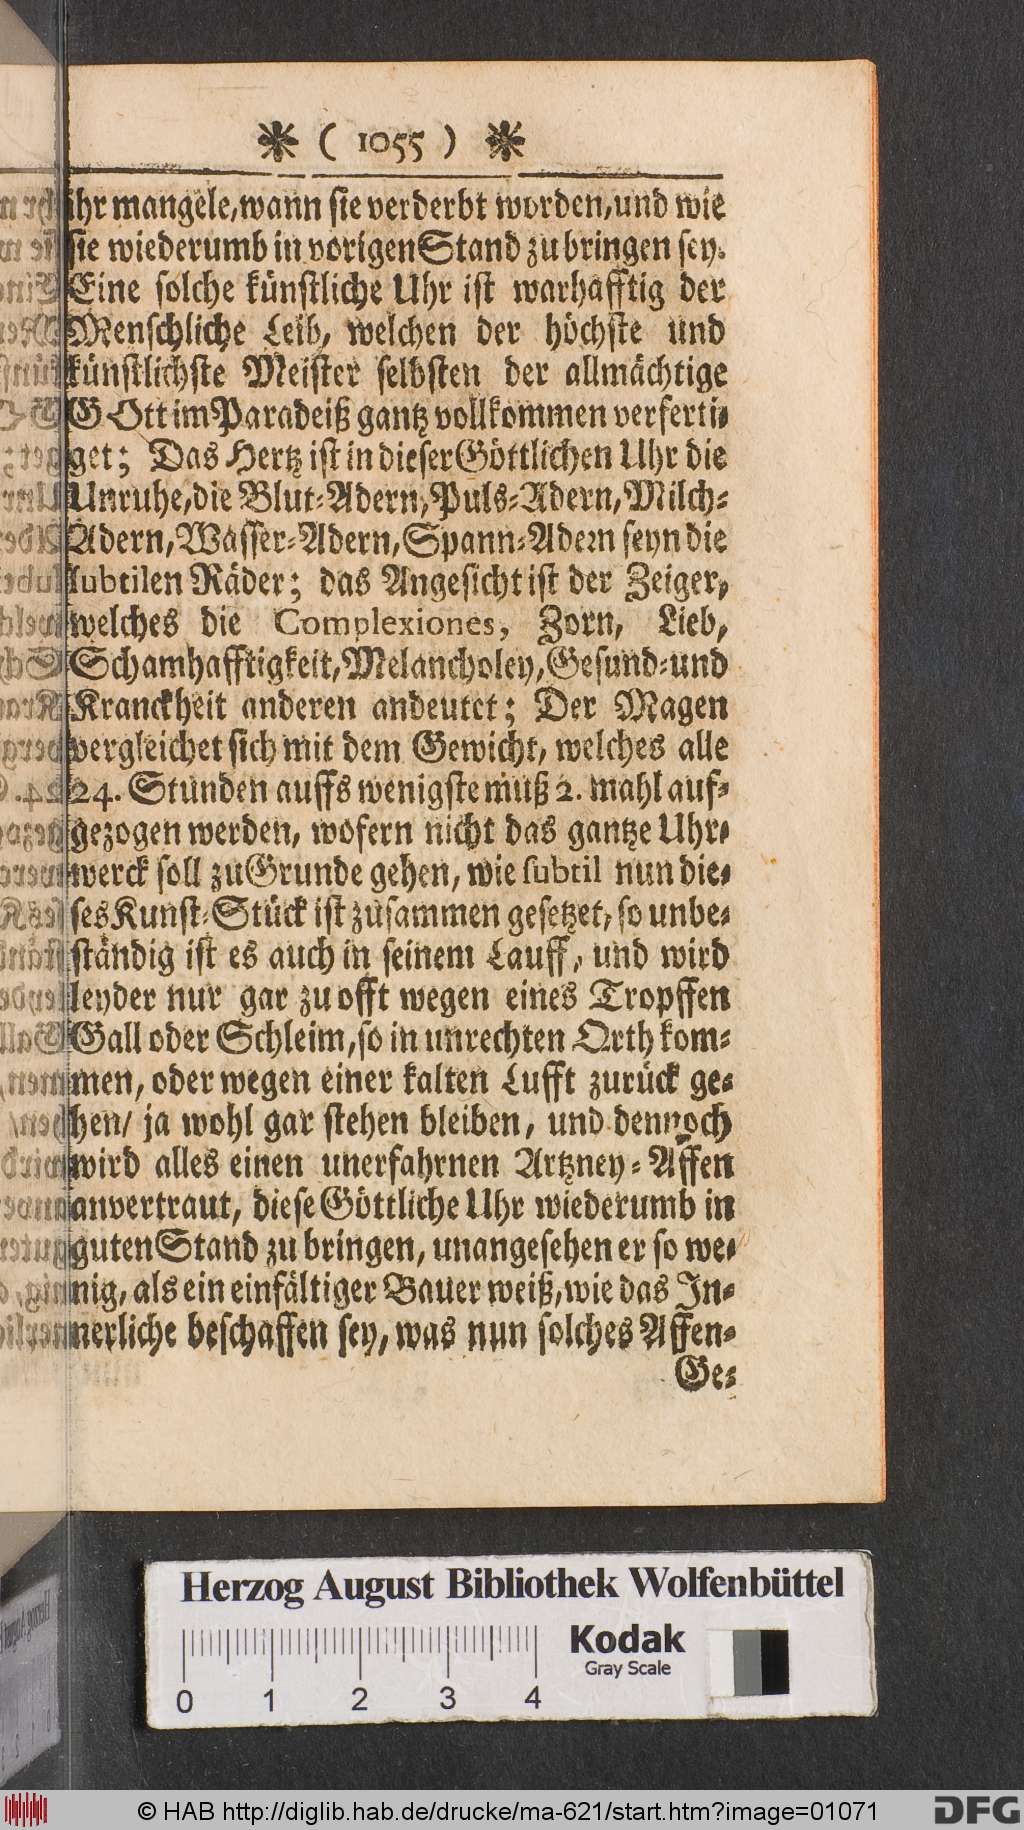 ❋ ( 1055 ) ❋
ihr mangele, wann sie verderbt worden, und wie
sie wiederumb in vorigen Stand zu bringen sey.
Eine solche künstliche Uhr ist warhafftig der
Menschliche Leib, welchen der höchste und
künstlichste Meister selbsten der allmächtige
GOtt im Paradeiß gantz vollkommen verferti-
get; Das Hertz ist in dieser Göttlichen Uhr die
Unruhe, die Blut-Adern, Puls-Adern, Milch-
Adern, Wasser-Adern, Spann-Adern seyn die
subtilen Räder; das Angesicht ist der Zeiger,
welches die Complexiones, Zorn, Lieb,
Schamhafftigkeit, Melancholey, Gesund- und
Kranckheit anderen andeutet; Der Magen
vergleichet sich mit dem Gewicht, welches alle
24. Stunden auffs wenigste muß 2. mahl auf-
gezogen werden, wofern nicht das gantze Uhr-
werck soll zu Grunde gehen, wie subtil nun die-
ses Kunst-Stück ist zusammen gesetzet, so unbe-
ständig ist es auch in seinem Lauff, und wird
leyder nur gar zu offt wegen eines Tropffen
Gall oder Schleim, so in unrechten Orth kom-
men, oder wegen einer kalten Lufft zurück ge-
hen/ ja wohl gar stehen bleiben, und dennoch
wird alles einen unerfahrnen Artzney-Affen
anvertraut, diese Göttliche Uhr wiederumb in
guten Stand zu bringen, unangesehen er so we-
nig, als ein einfältiger Bauer weiß, wie das In-
nerliche beschaffen sey, was nun solches Affen-
Ge-
Herzog August Bibliothek Wolfenbüttel
Kodak
Gray Scale
0 1 2 3 4
© HAB http://diglib.hab.de/drucke/ma-621/start.htm?image=01071
DFG